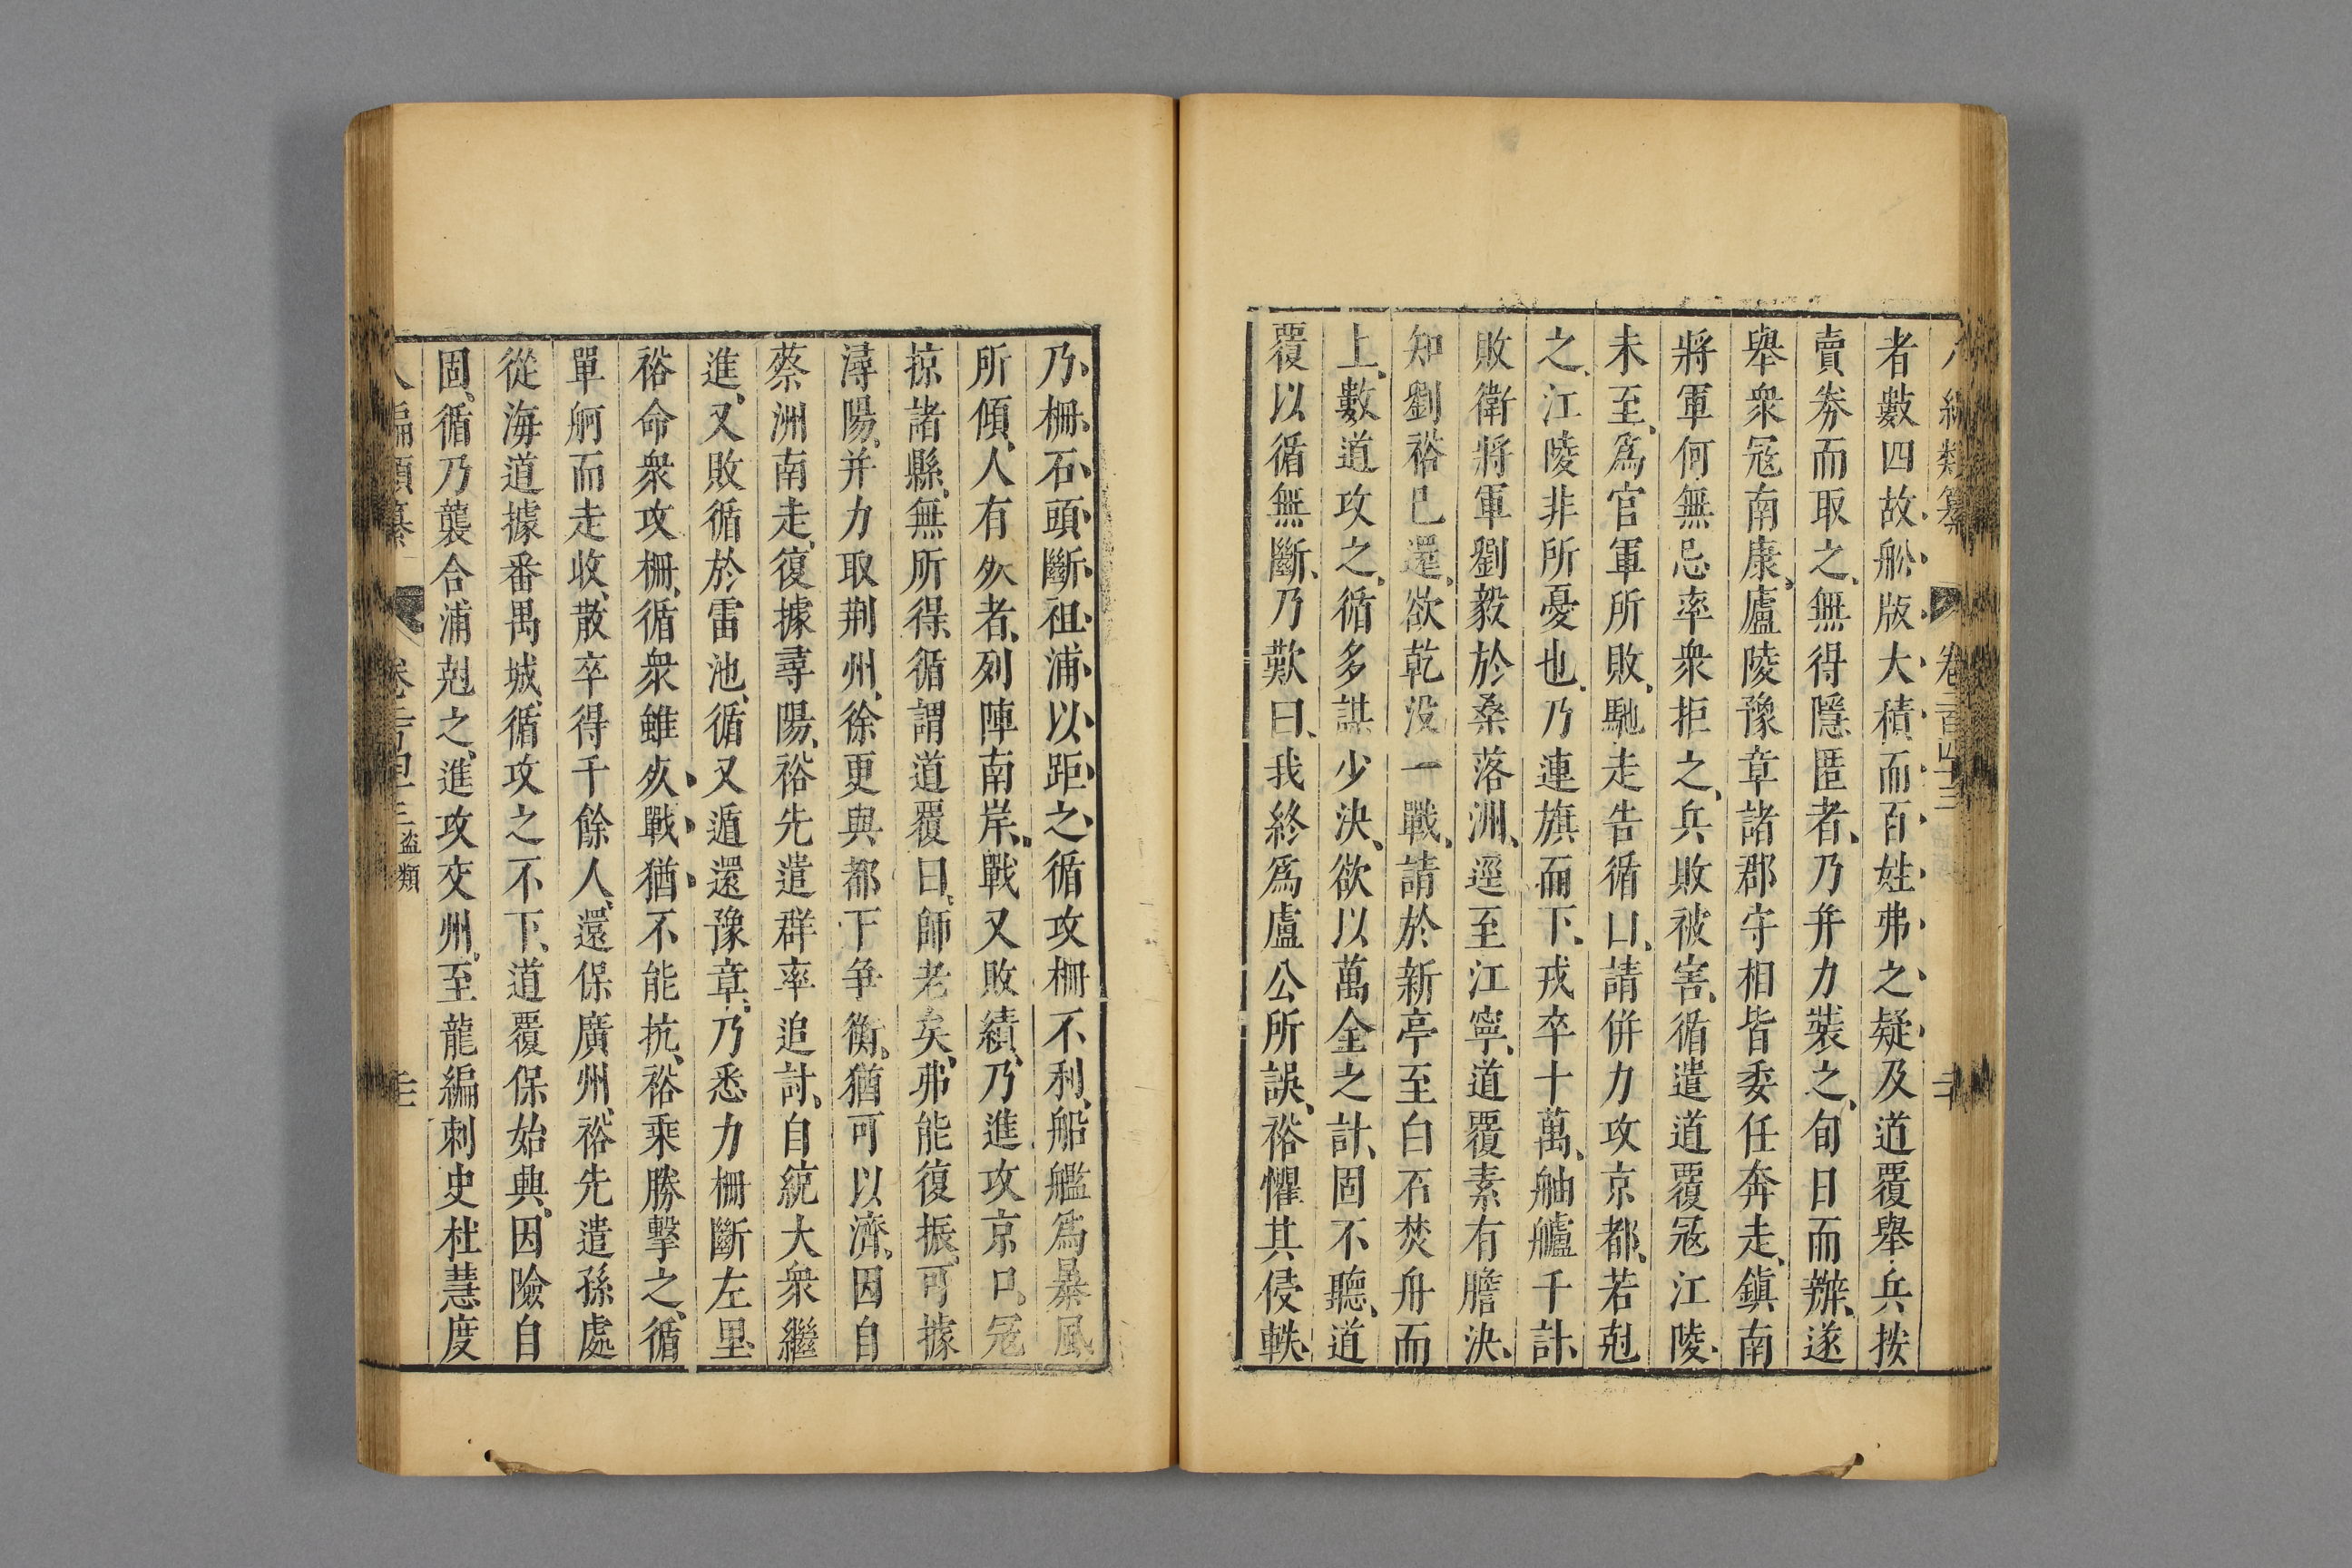 八編類纂 卷二百四十三
者數四故舩版大積而百姓弗之疑及道覆舉兵按
賣券而取之、無得隱匿者、乃并力裝之、旬日而辦、遂
舉衆冦南康、廬陵豫章諸郡守相皆委任奔走、鎮南
將軍何無忌率衆拒之、兵敗被害、循遣道覆冦江陵、
未至、爲官軍所敗、馳走告循曰、請併力攻京都、若剋
之、江陵非所憂也、乃連旗而下、戎卒十萬、舳艫千計、
敗衛將軍劉毅於桑落洲、逕至江寧、道覆素有膽決、
知劉裕已還、欲乾没一戰、請於新亭至白石焚舟而
上、數道攻之、循多謀少決、欲以萬全之計、固不聽、道
覆以循無斷、乃歎曰、我終爲盧公所誤、裕懼其侵軼、
乃柵石頭斷祖浦以距之循攻柵不利、船艦爲暴風
所傾、人有死者、列陣南岸、戰又敗績、乃進攻京口、冦
掠諸縣、無所得、循謂道覆曰、師老矣、弗能復振、可據
潯陽、并力取荆州、徐更與都下争衡、猶可以濟、因自
蔡洲南走、復據尋陽、裕先遣群率追討、自統大衆繼
進、又敗循於雷池、循又遁還豫章、乃悉力柵斷左里、
裕命衆攻柵、循衆雖死戰猶不能抗、裕乘勝擊之、循
單舸而走收散卒得千餘人、還保廣州、裕先遣孫處
從海道據番禺城、循攻之不下、道覆保始興、因險自
固、循乃襲合浦剋之、進攻交州、至龍編刺史杜慧度
八編類纂 卷二百四十三 盗類